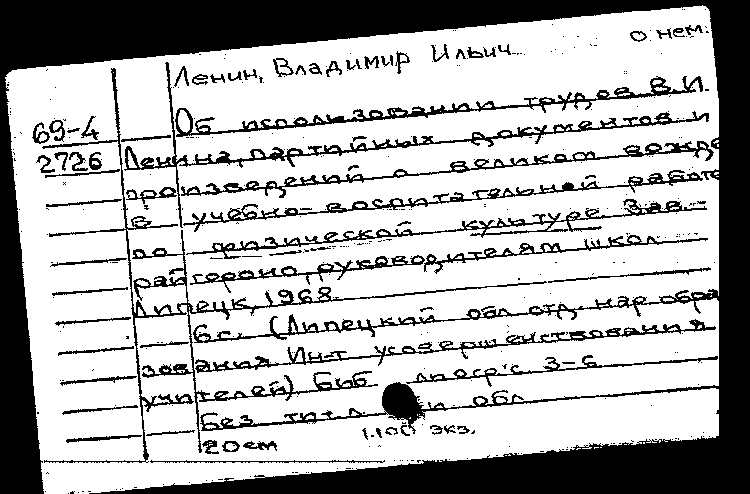 Ленин, Владимир Ильич о нем.
69-4 Об использовании трудов В.И.
2726 Ленина, партийных документов и
произведений о великом вожде
в учебно-воспитательной работе
по физической культуре. Зав.-
рай гороно, руководителям школ
Липецк, 1968.
6с. (Липецкий обл отд. нар обра
зования Ин-т усовершенствования
учителей) Биб с 3-6
Без тит л и обл
20см 1.100 экз.